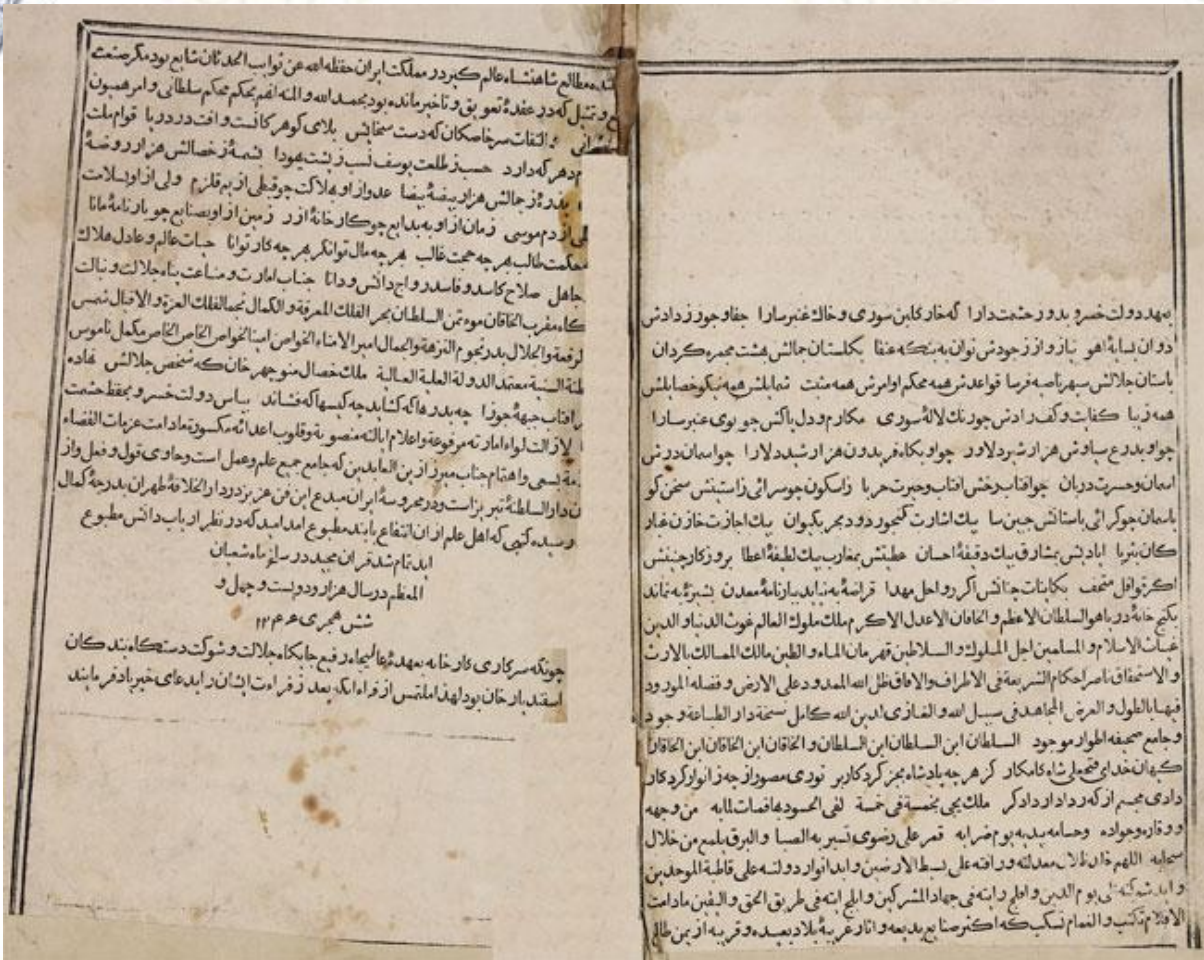 بعهد دولت خسرو بدور حشمت دارا که خار گلبن سوری و خاک عنبر سارا جفا و جور ز دادش
دوان بسایهٔ اهو نیاز و از ز جودش نوان به بنکه عنقا بگلستان جمالش هشت مجمره گردان
باستان جلالش سپهر ناصیه فرسا قواعدش همه محکم اوامرش همه مثبت شمایلش همه نیکو خصایلش
همه زیبا کفایت و کف رادش چو رنگ لالهٔ سوری مکارم و دل پاکش چو بوی عنبر سارا
چو او بدرع سیاوش هزار شیر دلاور چو او بگاه فریدون هزار شید دلارا چو اسمان درش
اسمان و حسرت دربان چو افتاب رخش افتاب و حیرت حربا
باسمان چو گرائی باستانش جبین سا بیک اشارت گنجور دود بحر بکیوان بیک اجازت خازن غبار
کان بثریا ایادیش بمشارق بیک دقیقهٔ احسان عطیتش بمغارب بیک لطیفهٔ اعطا بروزگار
اگر نوافل بکاینات اگر رواحل مهدا قراضهٔ به نیاید ببارنامهٔ معدن بشیزهٔ به نماند
بگنج خانهٔ دریا هو السلطان الاعظم و الخاقان الاعدل الاکرم ملک ملوک العالم غوث الدنیا و الدین
غیاث الاسلام و المسلمین اجل الملوک و السلاطین قهرمان الماء و الطین مالک الممالک بالارث
و الاستحقاق ناصر احکام الشریعة فی الاطراف و الافاق ظل الله الممدود علی الارض و فضله المورود
فیها بالطول و العرض المجاهد فی سبیل الله و الغازی لدین الله کامل نسخهٔ دار الطباعهٔ وجود
و جامع صحیفه اطوار موجود السلطان ابن السلطان ابن السلطان و الخاقان ابن الخاقان ابن الخاقان
کیهان خدای فتحعلی شاه کامکار کز هر چه پادشاه بجز کردکار بر نوری مصور از چه ز انوار کردکار
دادی مجسم از که ز دادار دادکر ملک یحی بخمسة فی خمسة لقی الحسود بها فمات لمابه من وجهه
و وقاره و جواده و حسامه بیدیه یوم ضرابه قمر علی رضوی تسیر به الصبا و البرق یلمع من خلال
سحابه اللهم ظلال معدلته و رافته علی بسط الارضین و ابد انوار دولته علی قاطبة الموحدین
و الی یوم الدین و رایته فی جهاد المشرکین و ایته فی طریق الحق و الیقین مادامت
الاقلام تکتب و الغمام تسکب که اکثر صنایع بدیعه و اثار غریبهٔ بلاد بعیده و قریبه از یمن طالع
مطالع شاهنشاه عالم گیر در مملکت ایران حفظه الله عن نوایب الحدثان شایع بود مگر صنعت
و تمثیل که در عقدهٔ تعویق و تاخیر مانده بود بحمد الله و المنه انهم بحکم محکم سلطانی و امر همیون
التفات سر خاصکان که دست سخایش بلای گوهر کانست و افت در دریا قوام ملت
دهر که دارد حسب ز طلعت یوسف نسب ز پشت یهودا شمهٔ ز خصالش هزار روضهٔ
ذرهٔ ز جمالش هزار بیضهٔ بیضا عدو از او بهلاکت چو قبطی از یم قلزم ولی از او بسلامت
از دم موسی زمان از او به بدایع چو کارخانهٔ ازر زمین از او بصنایع چو بارنامهٔ مانا
بحکمت طالب هر چه حجت غالب هر چه مال توانگر هر چه کار توانا حیات عالم و عادل هلاک
جاهل صلاح کاسد و فاسد رواج دانش و دانا جناب امارت و مناعت پناه جلالت و نبالت
مقرب الخاقان موتمن السلطان بحر الفلک المعرفة و الکمال نجما لفلک العزة و الاقبال شمس
الرفعة و الجلال بدر نجوم النزهة و الجمال امیر الامناء الخواص امینا لخواص الخاص الخاص مکمل ناموس
السنیة معتمد الدولة العلیة العالیة ملک خصال منوچهر خان که شخص جلالش نهاده
افتاب جبههٔ جوزا چه بدرها که گشاید چه کیسها که فشاند بپاس دولت خسرو بحفظ حشمت
لا زالت لواء امارته مرفوعة و اعلام ایالته منصوبة و قلوب اعدائه مکسورة مادامت عزمات القضاء
بسعی و اهتمام جناب میرزا زین العابدین که جامع جمیع علم و عمل است و حاوی قول و فعل و از
دار السلطنهٔ تبریز است و در محروسهٔ ایران مبدع این فن عزیز در دار الخلافهٔ طهران بدرجهٔ کمال
رسیده کتبی که اهل علم از ان انتفاع یابند مطبوع امد امید که در نظر ارباب دانش مطبوع
اید تمام شد قران مجید در سلخ ماه شعبان
المعظم در سال هزار و دویست و چهل و
شش هجری
چونکه سرکاری کارخانه بعهدهٔ عالیجاه رفیع جایگاه جلالت و شوکت دستگاه بندگان
اسفندیار خان بود لهذا ملتمس از قراء انکه بعد ز قراءت ایشان را بدعای خیر یاد فرمایند